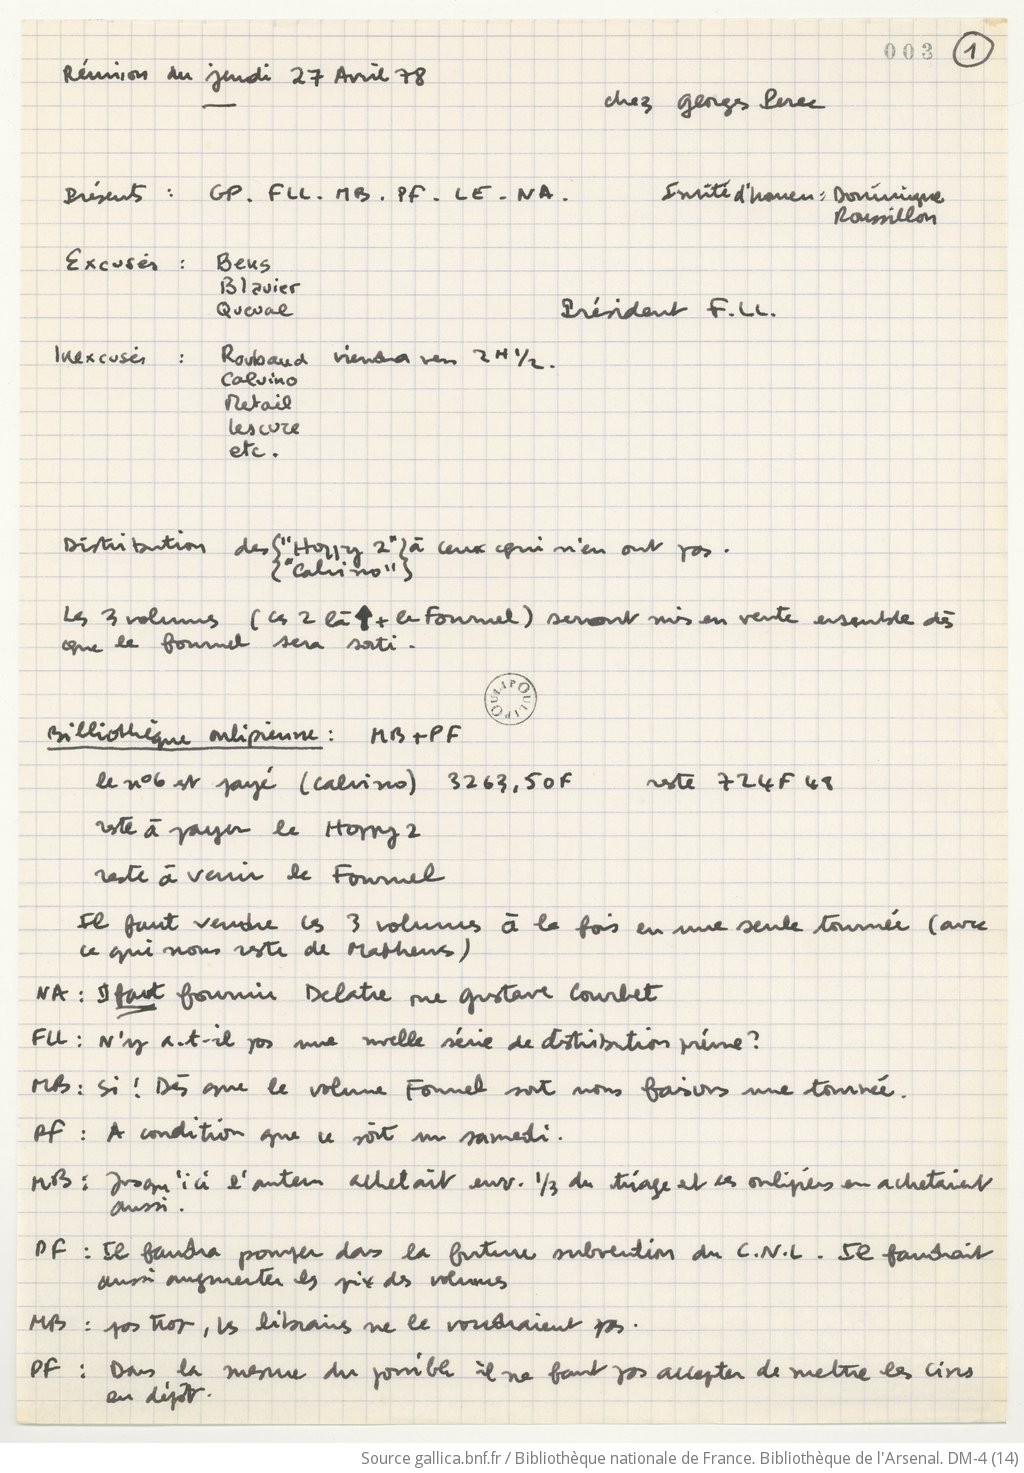 003 1
Réunion du jeudi 27 Avril 78
chez Georges Perec
Présents : GP. FLL. MB. PF. LE. NA.
Invité d'honneur : Dominique
Roussillon
Excusés : Bens
Blavier
Queval
Président F.LL.
Inexcusés : Roubaud viendra vers 2H 1/2.
Calvino
Metail
Lescure
etc.
Distribution des {"Hoppy 2"} à ceux qui n'en ont pas.
{"Calvino"}
Les 3 volumes (ces 2 là ↑ + le Fournel) seront mis en vente ensemble dès
que le fournel sera sorti.
OULIPO OULIPO
Bibliothèque oulipienne : MB+PF
le n°6 est payé (Calvino) 3263,50F reste 724F 48
reste à payer le Hoppy 2
reste à venir le Fournel
Il faut vendre ces 3 volumes à la fois en une seule tournée (avec
ce qui nous reste de Mathews)
NA : Il faut fournir Delatte rue Gustave Courbet
FLL : N'y a-t-il pas une nvelle série de distribution prévue ?
MB : Si ! Dès que le volume Fournel sort nous faisons une tournée.
PF : A condition que ce soit un samedi.
MB : Jusqu'ici l'auteur achetait env. 1/3 du tirage et les oulipiens en achetaient
aussi.
PF : Il faudra pomper dans la future subvention du C.N.L. Il faudrait
aussi augmenter les prix des volumes
MB : pas trop, les libraires ne le voudraient pas.
PF : Dans la mesure du possible il ne faut pas accepter de mettre les livres
en dépôt.
Source gallica.bnf.fr / Bibliothèque nationale de France. Bibliothèque de l'Arsenal. DM-4 (14)